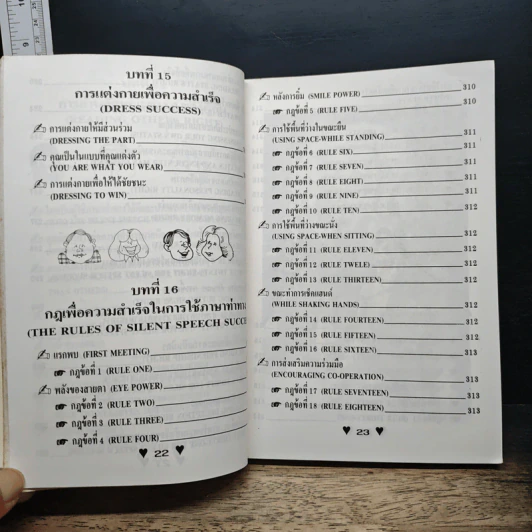 บทที่ 15
การแต่งกายเพื่อความสำเร็จ
(DRESS SUCCESS)
การแต่งกายให้มีส่วนร่วม
(DRESSING THE PART)
คุณเป็นในแบบที่คุณแต่งตัว
(YOU ARE WHAT YOU WEAR)
การแต่งกายเพื่อให้ได้ชัยชนะ
(DRESSING TO WIN)
บทที่ 16
กฎเพื่อความสำเร็จในการใช้ภาษาท่าทาง
(THE RULES OF SILENT SPEECH SUCC
แรกพบ (FIRST MEETING)
กฎข้อที่ 1 (RULE ONE)
พลังของสายตา (EYE POWER)
กฎข้อที่ 2 (RULE TWO)
กฎข้อที่ 3 (RULE THREE)
กฎข้อที่ 4 (RULE FOUR)
22
พลังการยิ้ม (SMILE POWER) 310
กฎข้อที่ 5 (RULE FIVE) 310
การใช้พื้นที่ว่างในขณะยืน
(USING SPACE-WHILE STANDING) 311
กฎข้อที่ 6 (RULE SIX) 311
กฎข้อที่ 7 (RULE SEVEN) 311
กฎข้อที่ 8 (RULE EIGHT) 311
กฎข้อที่ 9 (RULE NINE) 311
กฎข้อที่ 10 (RULE TEN) 311
การใช้พื้นที่ว่างขณะนั่ง
(USING SPACE-WHEN SITTING) 311
กฎข้อที่ 11 (RULE ELEVEN) 312
กฎข้อที่ 12 (RULE TWELE) 312
กฎข้อที่ 13 (RULE THIRTEEN) 312
ขณะทำการเช็คแฮนด์
(WHILE SHAKING HANDS) 312
กฎข้อที่ 14 (RULE FOURTEEN) 312
กฎข้อที่ 15 (RULE FIFTEEN) 312
กฎข้อที่ 16 (RULE SIXTEEN) 312
การส่งเสริมความร่วมมือ
(ENCOURAGING CO-OPERATION) 313
กฎข้อที่ 17 (RULE SEVENTEEN) 313
กฎข้อที่ 18 (RULE EIGHTEEN) 313
23